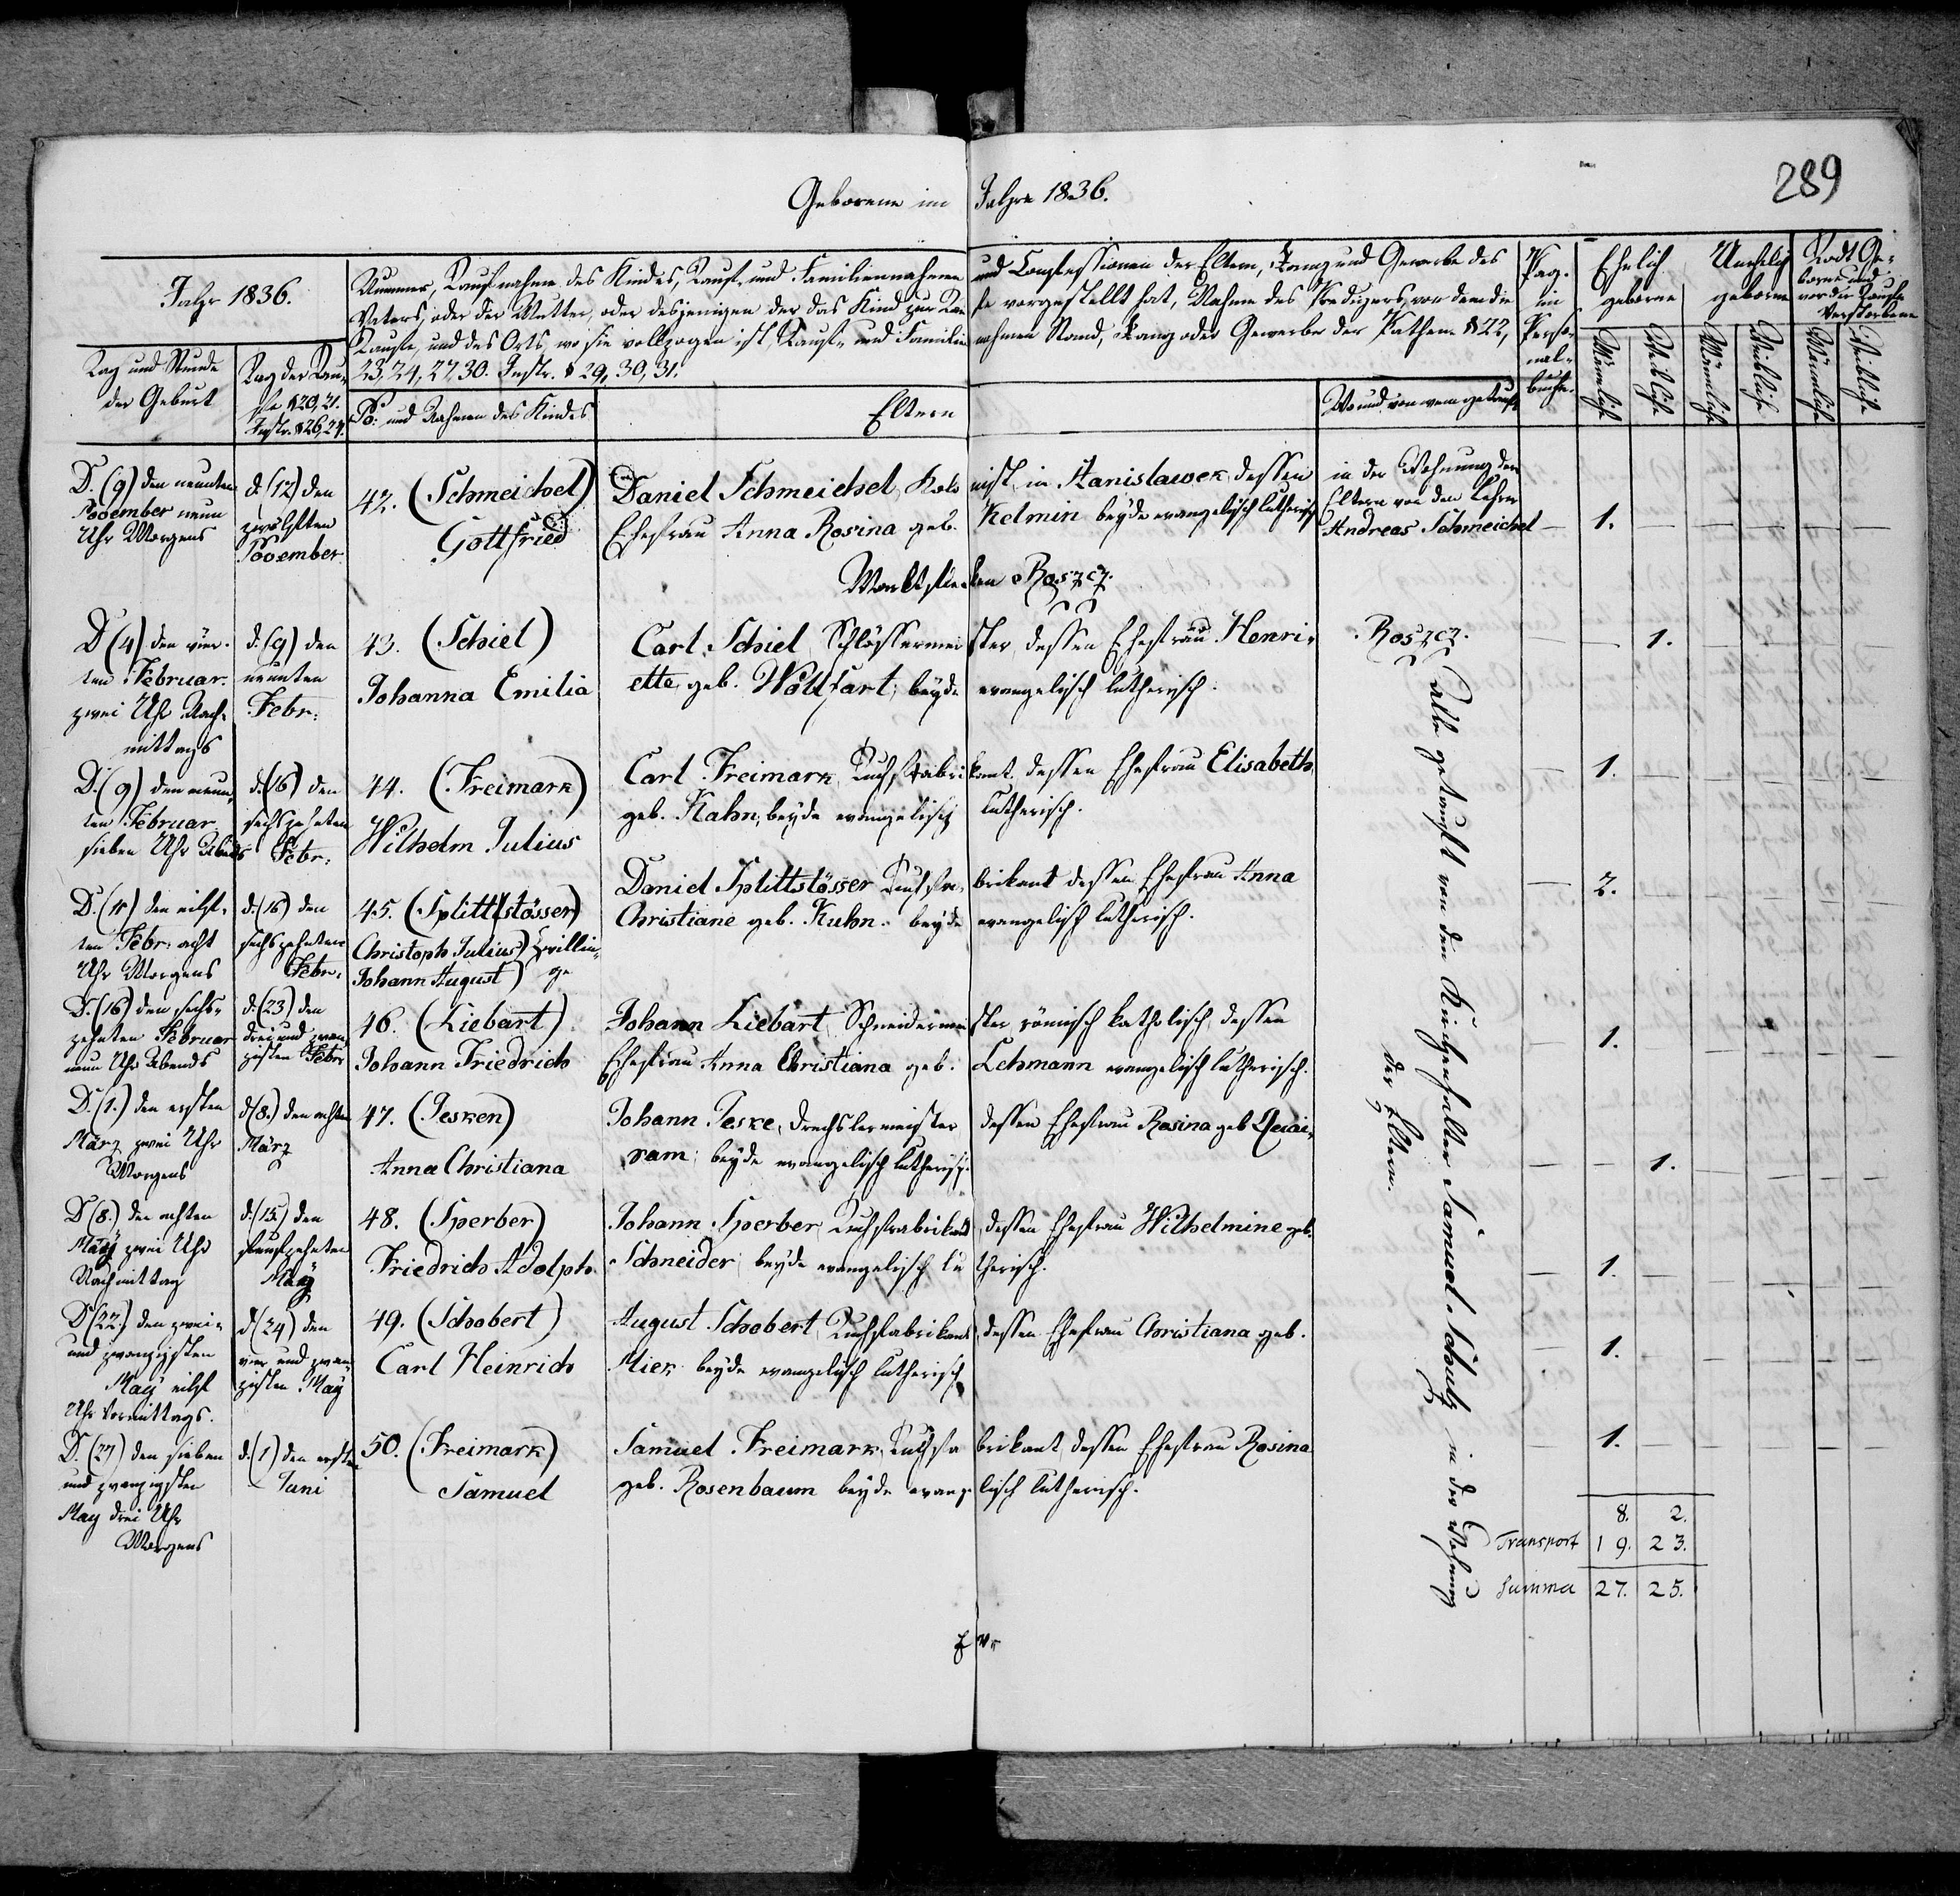 289
Geborene im Jahre 1836.
Jahr 1836.
Tag und Stunde der Geburt
Tag der Taufe §20,21. Instr. §26,27.
Nummer, Taufnahme des Kindes, Tauf- und Familiennahmen und Confessionen der Eltern, Rang und Gewerbe des
Vaters, oder der Mutter, oder desjenigen der das Kind zur Taufe vorgestellt hat, Nahme des Predigers, von dem die
Taufe, und des Orts, wo sie vollzogen ist, Tauf- und Familiennahmen Stand, Rang oder Gewerbe der Pathen. §22,
23, 24, 27, 30. Instr. § 29, 30, 31.
No: und Nahmen des Kindes
Eltern
Wo und von wem getauft
Pag. im Personalbuche.
Ehelich geborne
Unehelich geborne
Todt Geborne und vor der Taufe Verstorbene
Männliche
Weibliche
Männliche
Weibliche
Männliche
Weibliche
D. (9) den neunten
November neun
Uhr Morgens
d. (12) den
zwölften
November
42. (Schmeichel)
Gottfried
Daniel Schmeichel, Kolonist, in Stanislawek, dessen
Ehefrau Anna Rosina geb. Kelmin beyde evangelisch lutherisch
in der Wohnung der
Eltern von dem Lehrer
Andreas Schmeichel
1.
Marktflecken Roszcz.
D (4) den vier-
ten Februar.
zwei Uhr Nach-
mittags
d. (9) den
neunten
Febr:
43. (Schiel)
Johanna Emilia
Carl Schiel, Schlössermeister, dessen Ehefrau Henri-
ette, geb. Wollfart, beyde evangelisch lutherisch.
Roszcz.
1.
D. (9) den neun-
ten Februar
sieben Uhr Abends
d. (16) den
sechszehnten
Febr:
44. (Freimark)
Wilhelm Julius
Carl Freimark, Tuchfabrikant, dessen Ehefrau Elisabeth
geb. Kahn, beyde evangelisch lutherisch.
1.
D. (11) den eilf-
ten Febr: acht
Uhr Morgens
d. (16) den
sechszehnten
Febr:
45. (Splittstösser)
Christoph Julius) Zwillin-
Johann August) ge
Daniel Splittstösser Tuchfabrikant dessen Ehefrau Anna
Christiane geb. Kuhn. beyde evangelisch lutherisch.
2.
D. (16) den sechs-
zehnten Februar
neun Uhr Abends
d. (23) den
drei und zwan-
zigsten Febr
46. (Liebart)
Johann Friedrich
Johann Liebart, Schneidermeister, römisch katholisch, dessen
Ehefrau Anna Christiana geb. Lehmann evangelisch lutherisch.
1.
D. (1.) den ersten
März zwei Uhr
Morgens
d (8.) den achten
März
47. (Jesken)
Anna Christiana
Johann Jeske, Drechslermeister dessen Ehefrau Rosina geb
ram, beyde evangelisch lutherisch.
1.
D (8.) den achten
May zwei Uhr
Nachmittag
d. (15.) den
funfzehnten
May
48. (Sperber)
Friedrich Adolph.
Johann Sperber, Tuchfabrikant dessen Ehefrau Wilhelmine geb.
Schneider, beyde evangelisch lutherisch.
1.
D (22.) den zwei-
und zwanzigsten
May eilf
Uhr Vormittags.
d (24) den
vier und zwan-
zigsten May
49. (Schobert)
Carl Heinrich
August Schobert, Tuchfabrikant, dessen Ehefrau Christiana geb.
Miek beyde evangelisch lutherisch.
1.
D. (27) den sieben
und zwanzigsten
May drei Uhr
Morgens
d. (1) den ersten
Juni
50. (Freimark)
Samuel
Samuel Freimark, Tuchfabrikant, dessen Ehefrau Rosina
geb. Rosenbaum beyde evangelisch lutherisch.
1.
alle getauft von dem Kirchenhalter Samuel Schulz in der Wohnung
der Eltern.
8. 2.
Transport 19. 23.
Summa 27. 25.